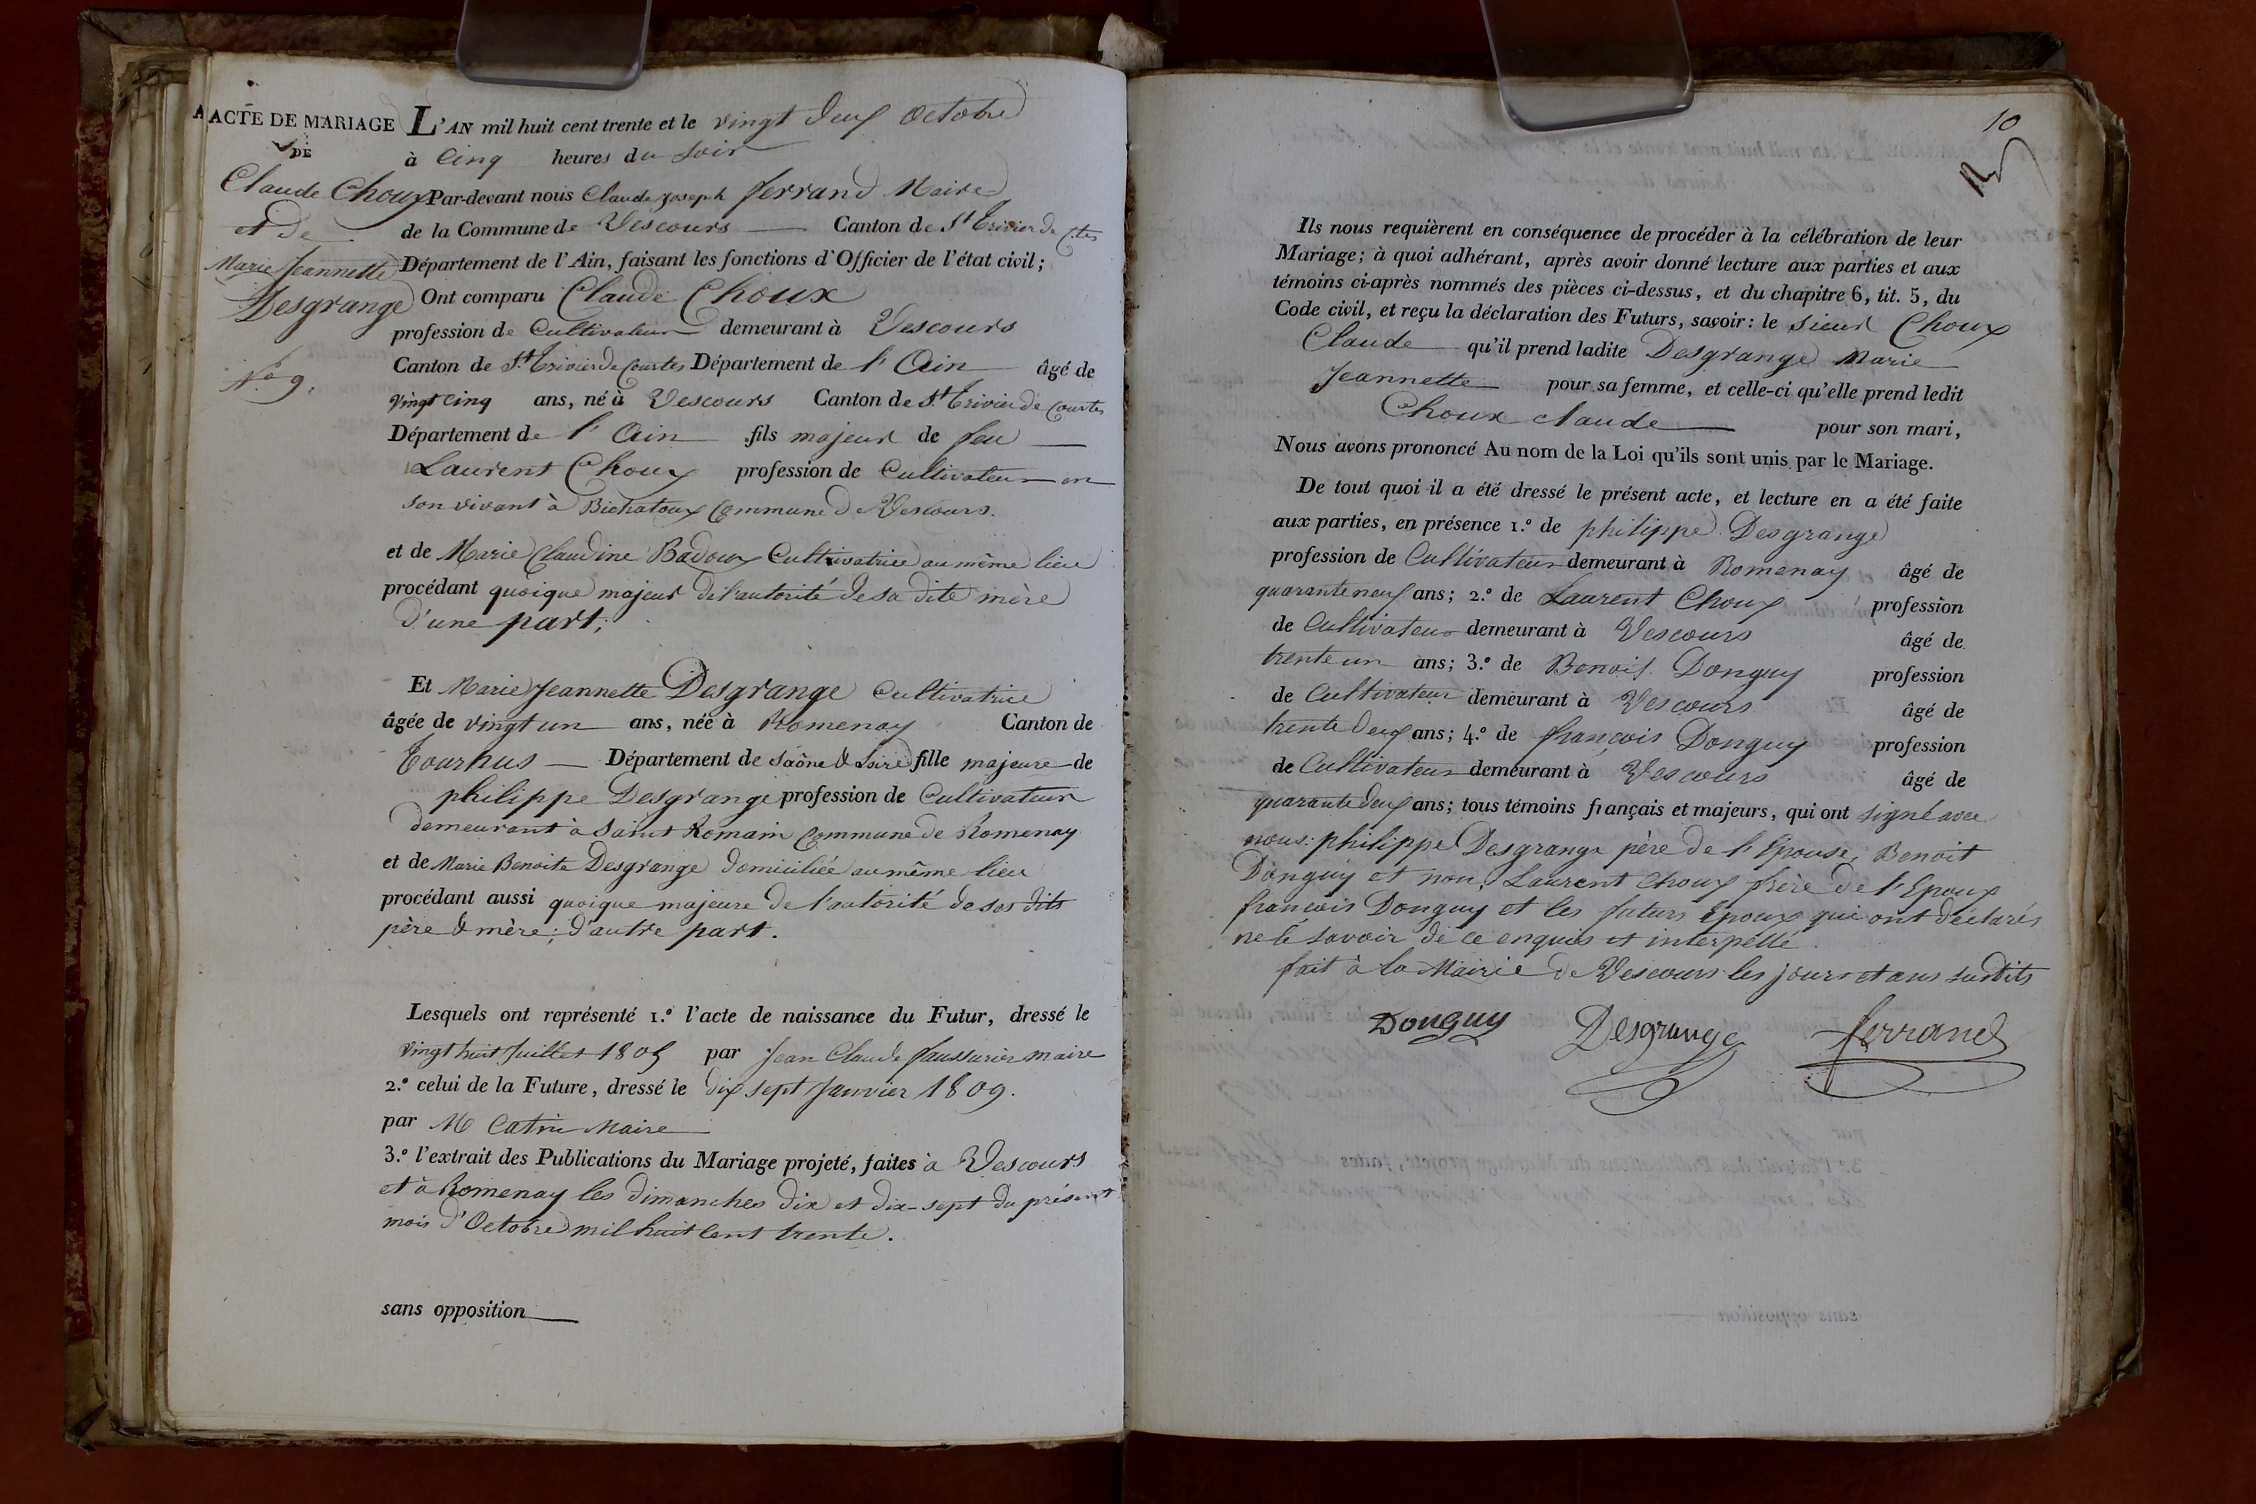 ACTE DE MARIAGE
DE
Claude Choux
et de
Marie Jeannette
Desgrange
N.º 9.
L'AN mil huit cent trente et le vingt deux octobre
à Cinq heures du soir
Par-devant nous Claude Joseph ferrand Maire
de la Commune de Vescours Canton de St Trivier de Ctes
Département de l'Ain, faisant les fonctions d'Officier de l'état civil;
Ont comparu Claude Choux
profession de Cultivateur demeurant à Vescours
Canton de St Trivier de Courtes Département de l'Ain âgé de
vingt cinq ans, né à Vescours Canton de St Trivier de Courtes
Département de l'Ain fils majeur de feu
Laurent Choux profession de Cultivateur en
son vivant à Bichatoux Commune de Vescours.
et de Marie Claudine Badoux Cultivatrice au même lieu
procédant quoique majeur de l'autorité de sa dite mère
d'une part;
Et Marie Jeannette Desgrange Cultivatrice
âgée de vingt un ans, née à Romenay Canton de
Tournus Département de Saône & Loire fille majeure de
philippe Desgrange profession de Cultivateur
demeurant à Saint Romain Commune de Romenay
et de Marie Benoite Desgrange domiciliée au même lieu
procédant aussi quoique majeure de l'autorité de ses dits
père & mère; d'autre part.
Lesquels ont représenté 1.º l'acte de naissance du Futur, dressé le
vingt huit Juillet 1805 par Jean Claude faussurier maire
2.º celui de la Future, dressé le dix sept Janvier 1809.
par M Catin Maire
3.º l'extrait des Publications du Mariage projeté, faites à Vescours
et à Romenay les dimanches dix et dix-sept du présent
mois d'Octobre mil huit cent trente.
sans opposition
10
Ils nous requièrent en conséquence de procéder à la célébration de leur
Mariage; à quoi adhérant, après avoir donné lecture aux parties et aux
témoins ci-après nommés des pièces ci-dessus, et du chapitre 6, tit. 5, du
Code civil, et reçu la déclaration des Futurs, savoir: le sieur Choux
Claude qu'il prend ladite Desgrange Marie
Jeannette pour sa femme, et celle-ci qu'elle prend ledit
Choux claude pour son mari,
Nous avons prononcé Au nom de la Loi qu'ils sont unis par le Mariage.
De tout quoi il a été dressé le présent acte, et lecture en a été faite
aux parties, en présence 1.º de philippe Desgrange
profession de Cultivateur demeurant à Romenay âgé de
quarante neuf ans; 2.º de Laurent Choux profession
de Cultivateur demeurant à Vescours âgé de
trente un ans; 3.º de Benoit Donguy profession
de Cultivateur demeurant à Vescours âgé de
trente deux ans; 4.º de françois Donguy profession
de Cultivateur demeurant à Vescours âgé de
quarante deux ans; tous témoins français et majeurs, qui ont signé avec
nous: philippe Desgrange père de l'Epouse, Benoit
Donguy et non, Laurent Choux frère de l'Epoux
francois Donguy et les futurs Epoux qui ont déclarés
ne le savoir de ce enquis et interpellé.
fait à la Mairie de Vescours les jours et ans susdits
Donguy Desgrange ferrand